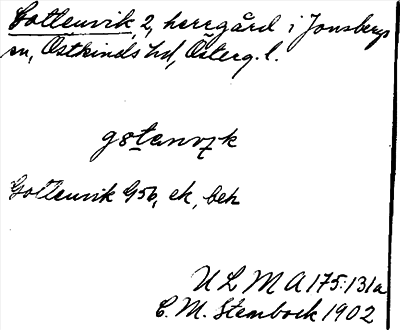 Gottenvik, 2, herrgård i Jonsbergs
sn, Östkinds hd, Österg. l.
Gottenvik G5b, ek, beh
ULMA 175:131a
C. M. Stenbock 1902